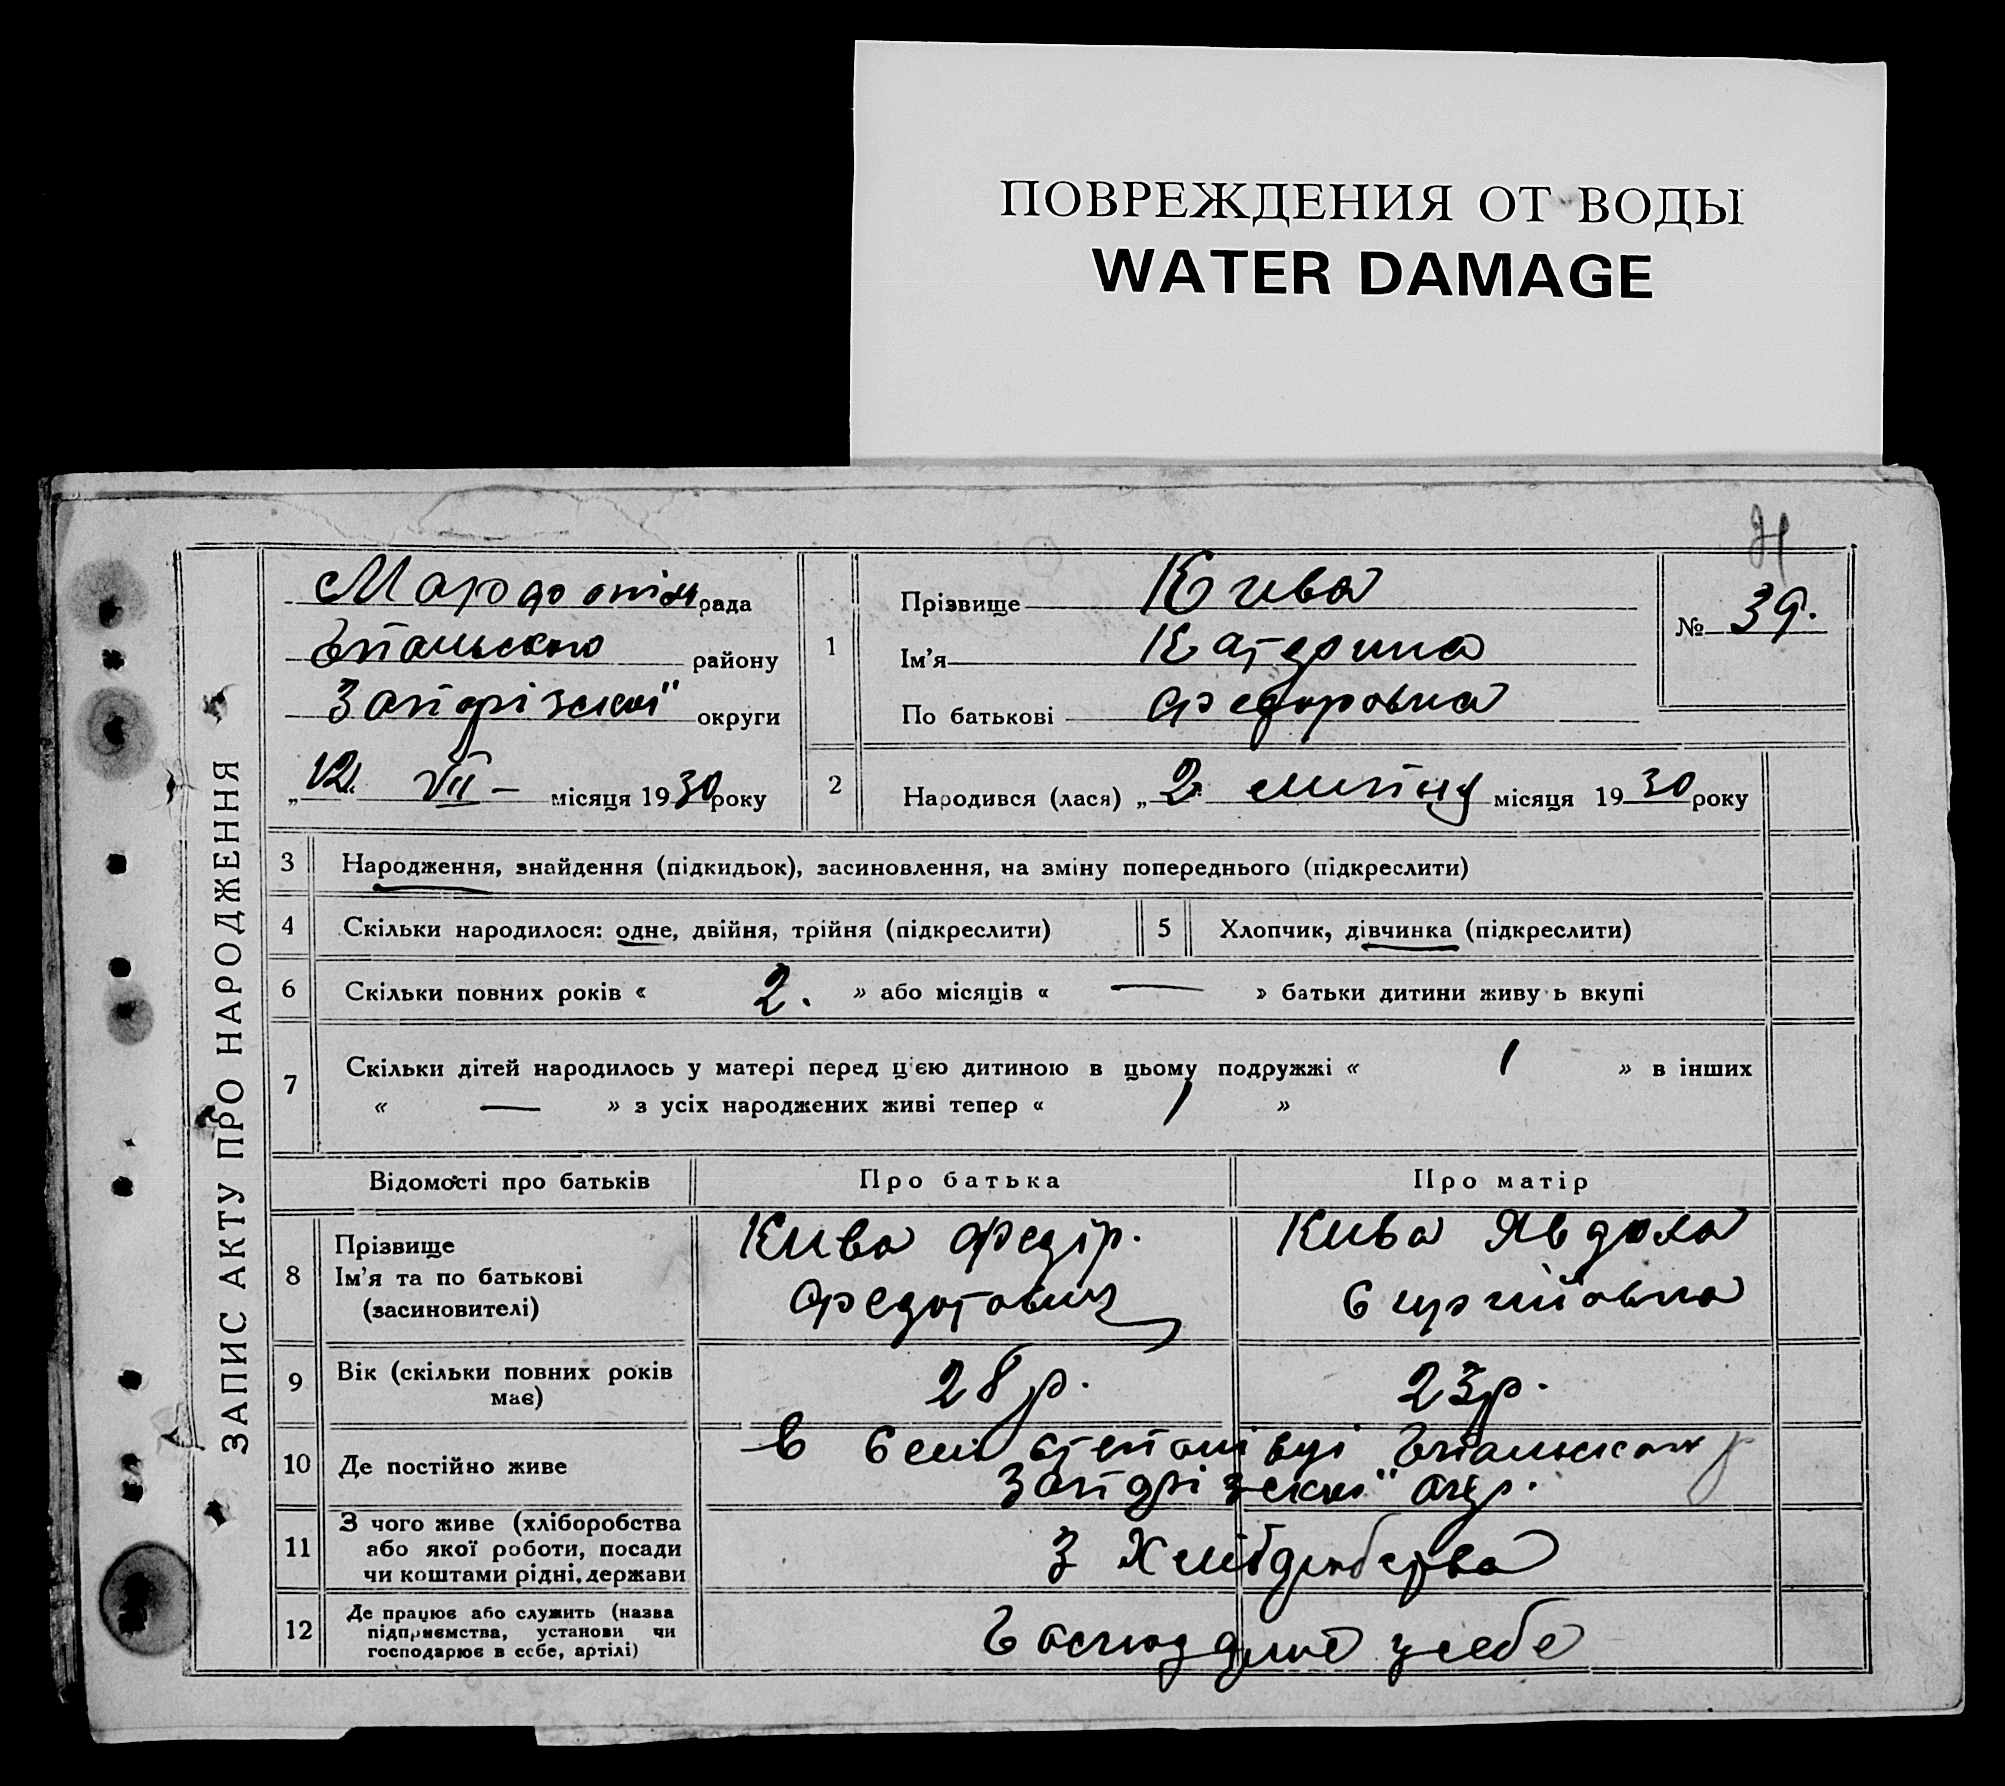 ПОВРЕЖДЕНИЯ ОТ ВОДЫ
WATER DAMAGE
ЗАПИС АКТУ ПРО НАРОДЖЕННЯ
рада
району
Запорізької округи
„12. VII – місяця 1930 року
1
Прізвище Кива
Ім’я Катерина
По батькові Федоровна
№ 39.
2
Народився (лася) „2. липня місяця 1930 року
3 Народження, знайдення (підкидьок), засиновлення, на зміну попереднього (підкреслити)
4 Скільки народилося: одне, двійня, трійня (підкреслити)
5 Хлопчик, дівчинка (підкреслити)
6 Скільки повних років « 2. » або місяців « — » батьки дитини живу ь вкупі
7 Скільки дітей народилось у матері перед ц'єю дитиною в цьому подружжі « 1 » в інших
« — » з усіх народжених живі тепер « 1 »
Відомості про батьків Про батька Про матір
8 Прізвище
Ім’я та по батькові
(засиновителі)
Кива Федір.
Федотович
Кива Явдоха
Сиргийовна
9 Вік (скільки повних років
має)
28 р. 23 р.
10 Де постійно живе
в селі Степанівці
Запорізської окр.
11 З чого живе (хліборобства
або якої роботи, посади
чи коштами рідні, держави
З Хліборобства
12 Де працює або служить (назва
підприємства, установи чи
господарює в себе, артілі)
Господарює у себе